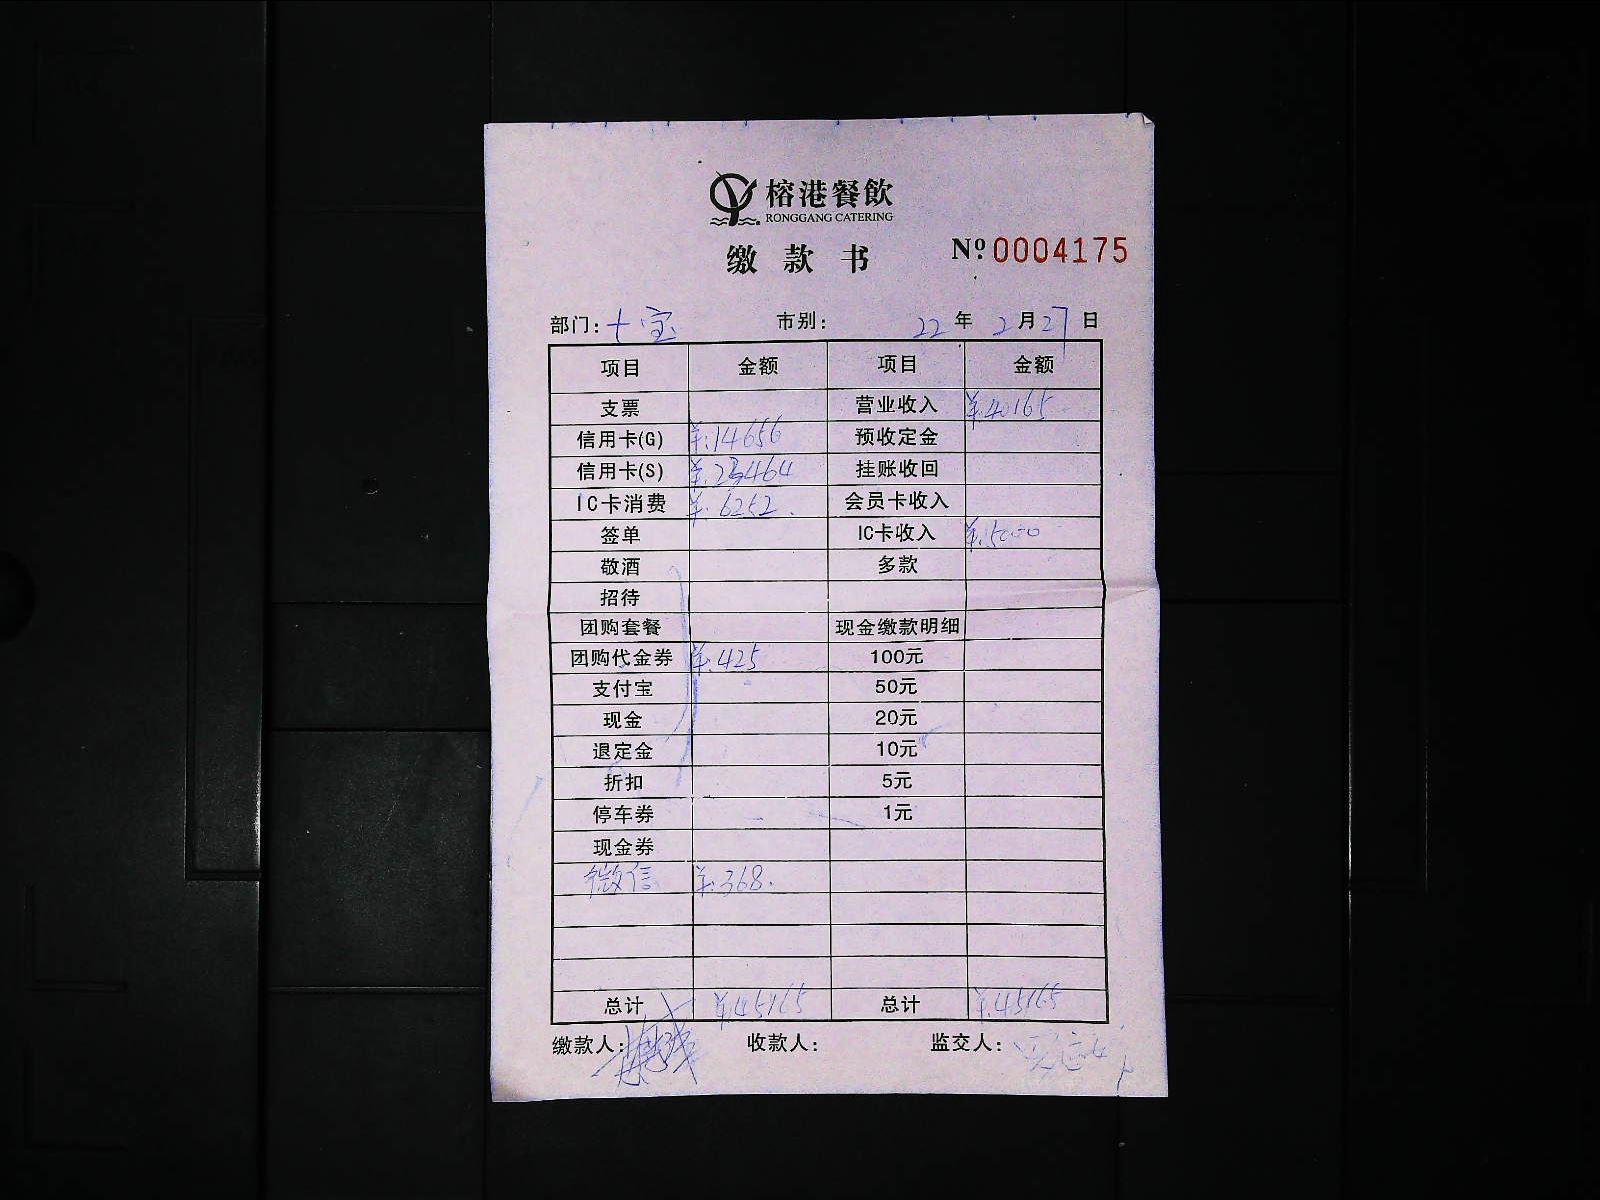 榕港餐飲
RONGGANG CATERING
缴款书 Nº 0004175
部门: 七宝 市别: 22年2月27日
项目 金额 项目 金额
支票 营业收入 ¥:40165
信用卡(G) ¥:14656 预收定金
信用卡(S) ¥:23464 挂账收回
IC卡消费 ¥:6252. 会员卡收入
签单 IC卡收入 ¥:5000
敬酒 多款
招待
团购套餐 现金缴款明细
团购代金券 ¥:425 100元
支付宝 50元
现金 20元
退定金 10元
折扣 5元
停车券 1元
现金券
微信 ¥:368.
总计 ¥45165 总计 ¥:45165
缴款人: 收款人: 监交人: